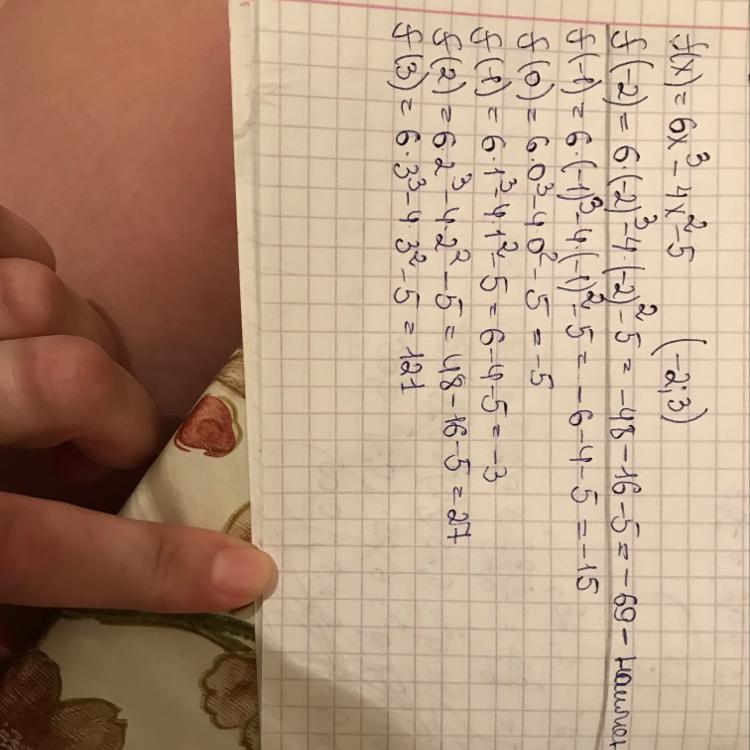 f(x) = 6x³ - 4x² - 5 (-2;3)
f(-2) = 6(-2)³ - 4·(-2)² - 5 = -48 - 16 - 5 = -69 -
f(-1) = 6·(-1)³ - 4·(-1)² - 5 = -6 - 4 - 5 = -15
f(0) = 6·0³ - 4·0² - 5 = -5
f(1) = 6·1³ - 4·1² - 5 = 6 - 4 - 5 = -3
f(2) = 6·2³ - 4·2² - 5 = 48 - 16 - 5 = 27
f(3) = 6·3³ - 4·3² - 5 = 121